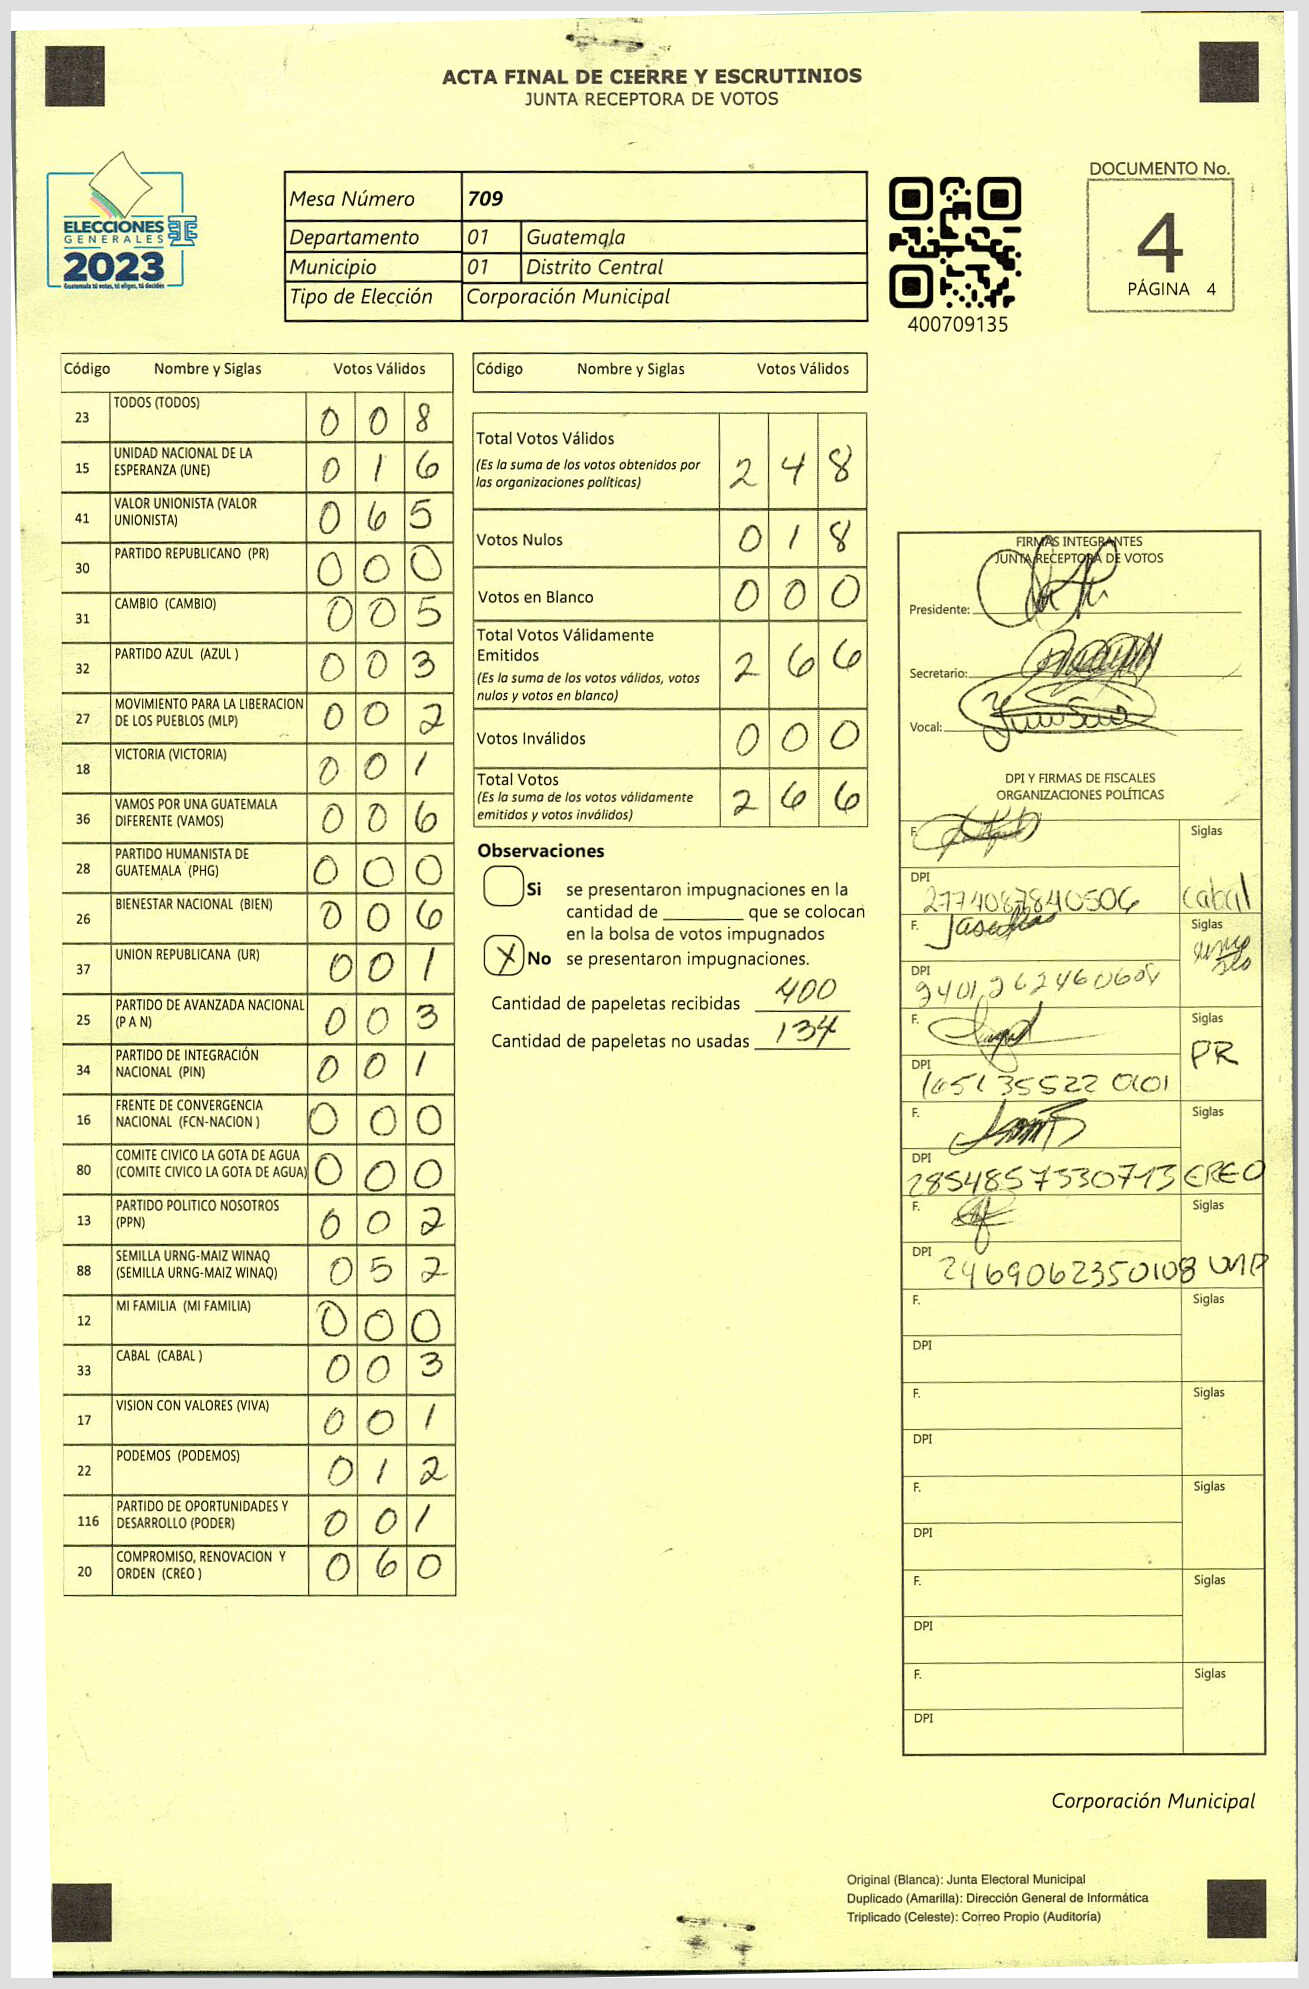 ACTA FINAL DE CIERRE Y ESCRUTINIOS
JUNTA RECEPTORA DE VOTOS
ELECCIONES
GENERALES
2023
Guatemala tú votas, tú eliges, tú decides
Mesa Número 709
Departamento 01 Guatemala
Municipio 01 Distrito Central
Tipo de Elección Corporación Municipal
400709135
DOCUMENTO No.
4
PÁGINA 4
Código Nombre y Siglas Votos Válidos
23 TODOS (TODOS) 0 0 8
15 UNIDAD NACIONAL DE LA ESPERANZA (UNE) 0 1 6
41 VALOR UNIONISTA (VALOR UNIONISTA) 0 6 5
30 PARTIDO REPUBLICANO (PR) 0 0 0
31 CAMBIO (CAMBIO) 0 0 5
32 PARTIDO AZUL (AZUL ) 0 0 3
27 MOVIMIENTO PARA LA LIBERACION DE LOS PUEBLOS (MLP) 0 0 2
18 VICTORIA (VICTORIA) 0 0 1
36 VAMOS POR UNA GUATEMALA DIFERENTE (VAMOS) 0 0 6
28 PARTIDO HUMANISTA DE GUATEMALA (PHG) 0 0 0
26 BIENESTAR NACIONAL (BIEN) 0 0 6
37 UNION REPUBLICANA (UR) 0 0 1
25 PARTIDO DE AVANZADA NACIONAL (P A N) 0 0 3
34 PARTIDO DE INTEGRACIÓN NACIONAL (PIN) 0 0 1
16 FRENTE DE CONVERGENCIA NACIONAL (FCN-NACION ) 0 0 0
80 COMITE CIVICO LA GOTA DE AGUA (COMITE CIVICO LA GOTA DE AGUA) 0 0 0
13 PARTIDO POLITICO NOSOTROS (PPN) 0 0 2
88 SEMILLA URNG-MAIZ WINAQ (SEMILLA URNG-MAIZ WINAQ) 0 5 2
12 MI FAMILIA (MI FAMILIA) 0 0 0
33 CABAL (CABAL ) 0 0 3
17 VISION CON VALORES (VIVA) 0 0 1
22 PODEMOS (PODEMOS) 0 1 2
116 PARTIDO DE OPORTUNIDADES Y DESARROLLO (PODER) 0 0 1
20 COMPROMISO, RENOVACION Y ORDEN (CREO ) 0 6 0
Código Nombre y Siglas Votos Válidos
Total Votos Válidos 2 4 8
(Es la suma de los votos obtenidos por
las organizaciones políticas)
Votos Nulos 0 1 8
Votos en Blanco 0 0 0
Total Votos Válidamente
Emitidos 2 6 6
(Es la suma de los votos válidos, votos
nulos y votos en blanco)
Votos Inválidos 0 0 0
Total Votos 2 6 6
(Es la suma de los votos válidamente
emitidos y votos inválidos)
Observaciones
Si se presentaron impugnaciones en la
cantidad de ________ que se colocan
en la bolsa de votos impugnados
X No se presentaron impugnaciones.
Cantidad de papeletas recibidas 400
Cantidad de papeletas no usadas 134
FIRMAS INTEGRANTES
JUNTA RECEPTORA DE VOTOS
Presidente:
Secretario:
Vocal:
DPI Y FIRMAS DE FISCALES
ORGANIZACIONES POLÍTICAS
F. Siglas
DPI 2774087840506 Cabal
F. Siglas
DPI
F. Siglas
DPI PR
F. Siglas
DPI 2854857330713 CREO
F. Siglas
DPI 2469062350108
F. Siglas
DPI
F. Siglas
DPI
F. Siglas
DPI
F. Siglas
DPI
F. Siglas
DPI
Corporación Municipal
Original (Blanca): Junta Electoral Municipal
Duplicado (Amarilla): Dirección General de Informática
Triplicado (Celeste): Correo Propio (Auditoría)